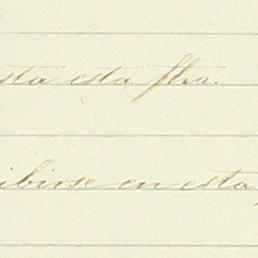 sta esta fha.
ibirse en esta